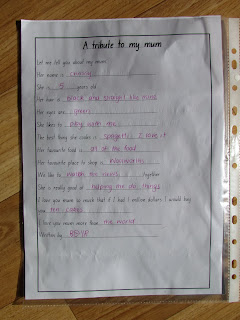 A tribute to my mum
Let me tell you about my mum.
Her name is
She is 5 years old.
Her hair is black and straight like mine
Her eyes are green
She likes to play with me
The best thing she cooks is spaghetti I love it
Her favourite food is all of the food
Her favourite place to shop is Woolworths
We like to watch the movies together.
She is really good at helping me do things
I love you mum so much that if I had 1 million dollars I would buy
you
I love you mum more than the world
Written by